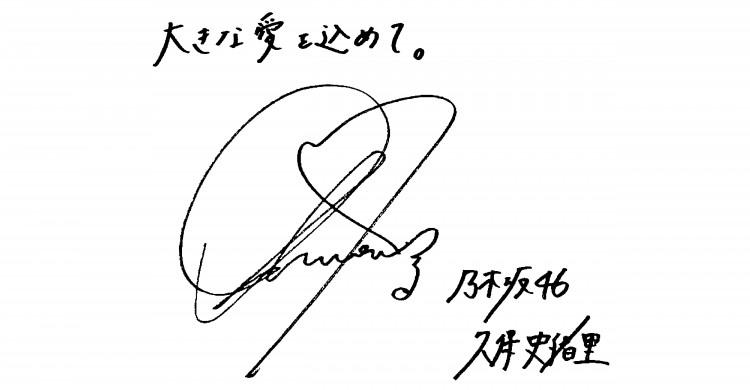 大きな愛を込めて。
乃木坂46
久保史緒里